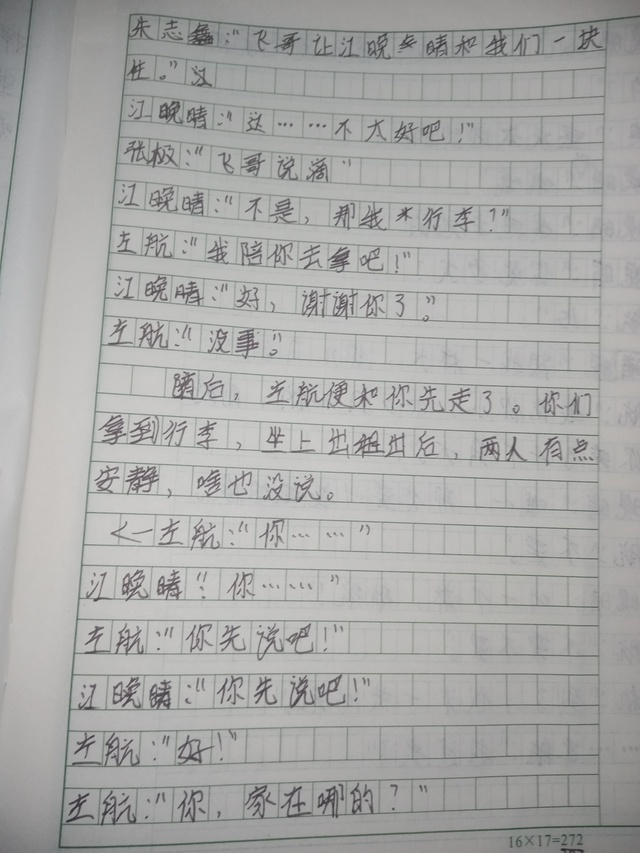 朱志鑫:“飞哥让江晚晴和我们一块
住。”
江晚晴:“这……不太好吧!”
张极:“飞哥说滴”
江晚晴:“不是,那我行李?”
左航:“我陪你去拿吧!”
江晚晴:“好,谢谢你了。”
左航:“没事。”
随后,左航便和你先走了。你们
拿到行李,坐上出租出后,两人有点
安静,啥也没说。
<一左航:“你……”
江晚晴“:你……”
左航:“你先说吧!”
江晚晴:“你先说吧!”
左航:“好!”
左航:“你,家在哪的?”
16×17=272